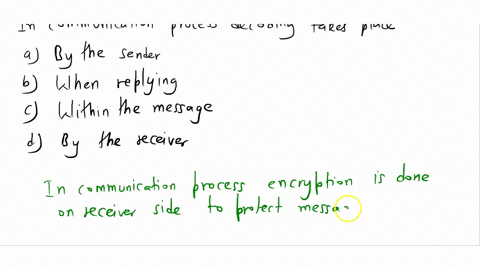 In communication process decoding takes place
a) By the sender
b) When replying
c) Within the message
d) By the receiver
In communication process encryption is done
on receiver side to protect messa